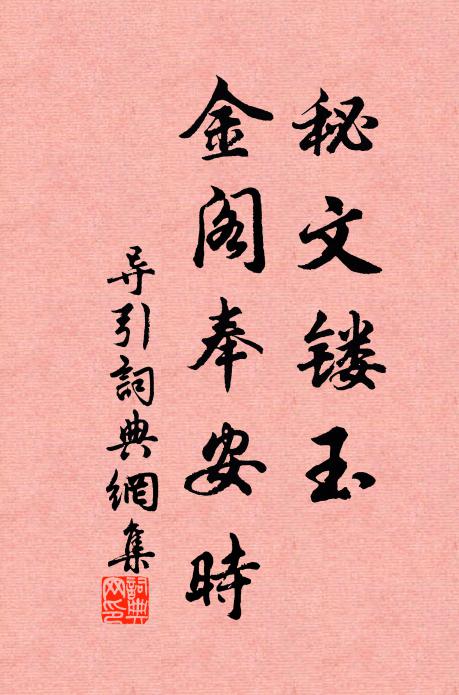 秘文镂玉
金阁奉安時
导引詞典網集
詞典网印